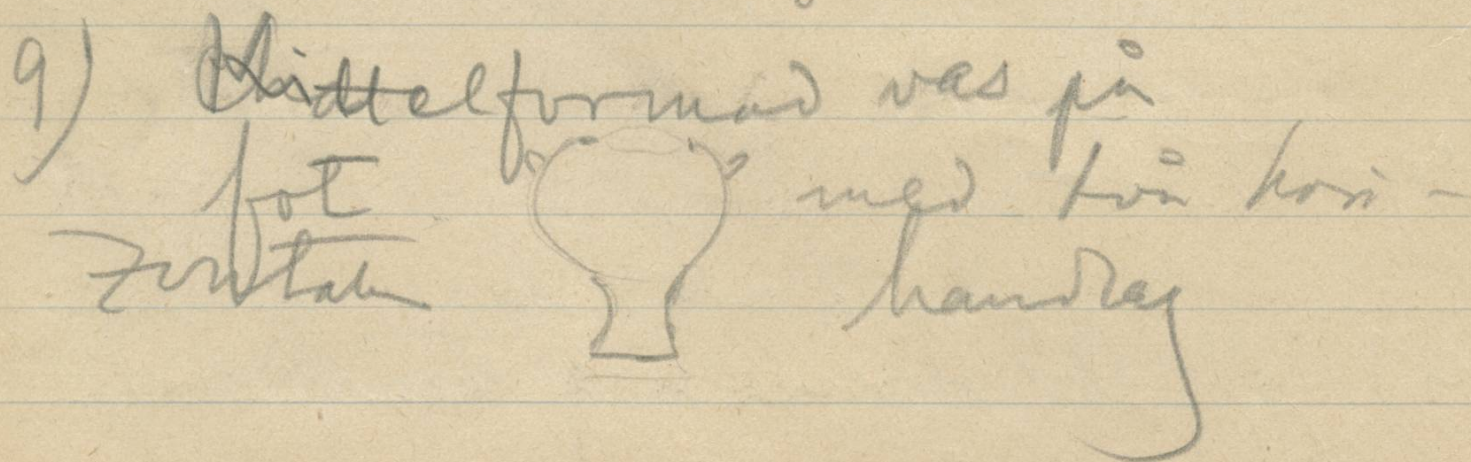 9) Kittelformad vas på
fot med två hori-
zontala handtag